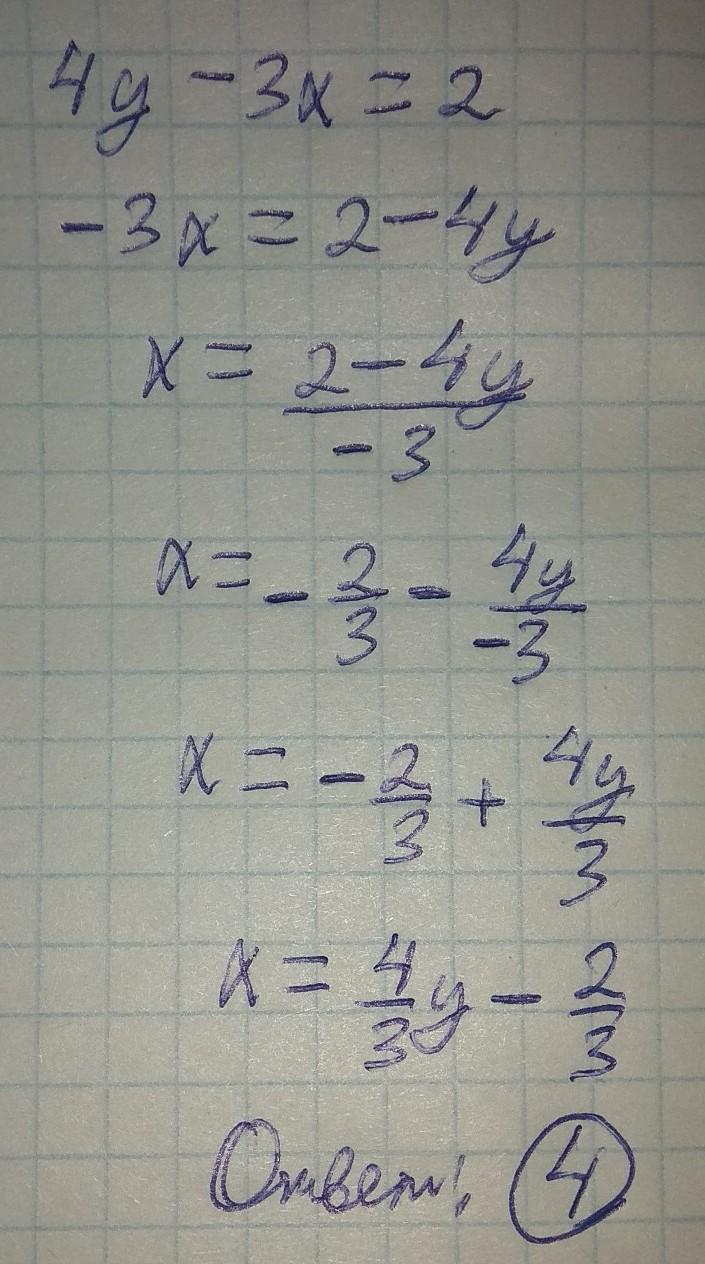 4y - 3x = 2
-3x = 2 - 4y
x = (2 - 4y)/(-3)
x = - 2/3 - 4y/(-3)
x = - 2/3 + 4y/3
x = 4/3 y - 2/3
Ответ: 4